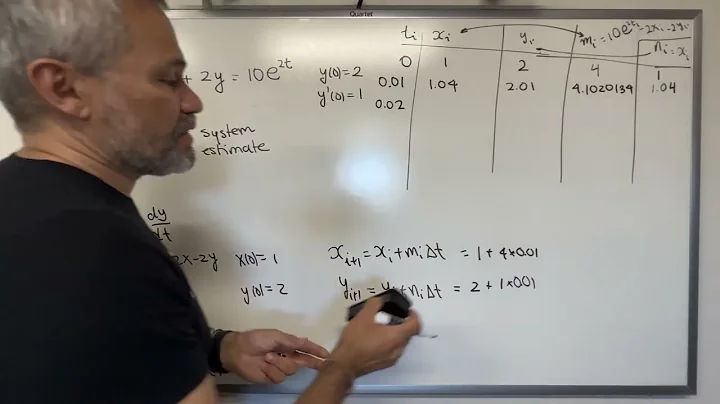 Quartet
+ 2y = 10e^2t
y(0) = 2
y'(0) = 1
system
estimate
t_i x_i y_i m_i = 10e^2t_i - 2x_i - 2y_i n_i = x_i
0 1 2 4 1
0.01 1.04 2.01 4.1020134 1.04
0.02
dy
dt
2x-2y x(0) = 1
y(0) = 2
x_i+1 = x_i + m_i Δt = 1 + 4*0.01
y_i+1 = y_i + n_i Δt = 2 + 1*0.01